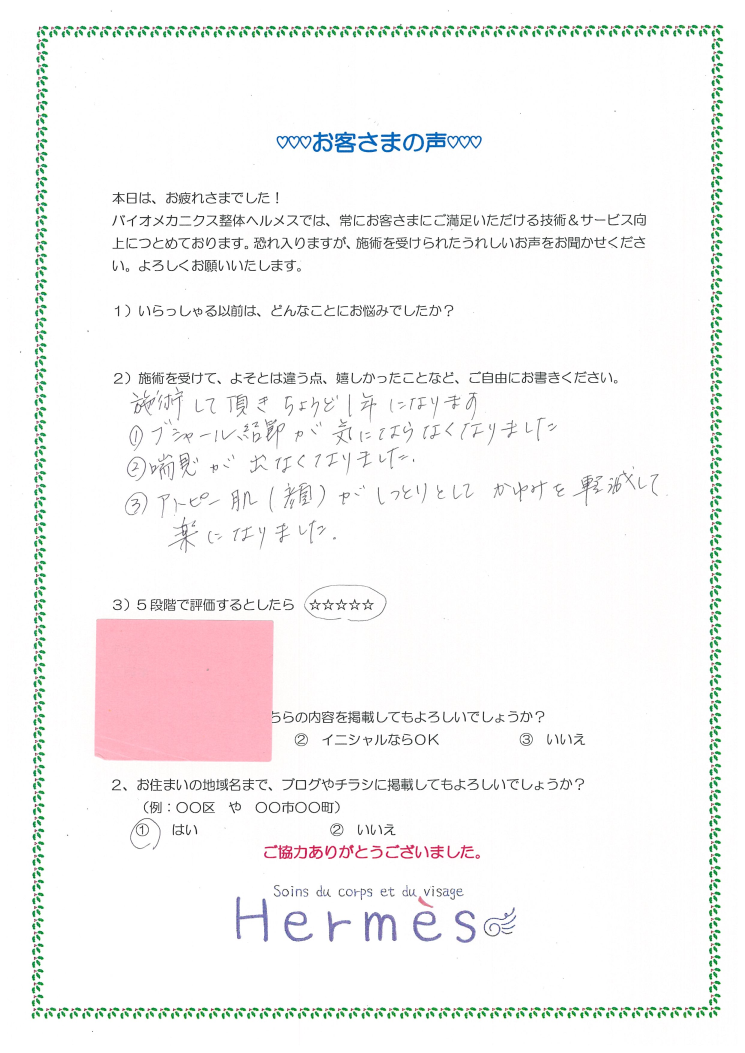 ♡♡♡お客さまの声♡♡♡
本日は、お疲れさまでした！
バイオメカニクス整体ヘルメスでは、常にお客さまにご満足いただける技術＆サービス向
上につとめております。恐れ入りますが、施術を受けられたうれしいお声をお聞かせくださ
い。よろしくお願いいたします。
１）いらっしゃる以前は、どんなことにお悩みでしたか？
２）施術を受けて、よそとは違う点、嬉しかったことなど、ご自由にお書きください。
施術して頂きちょうど1年になります
①ブシャール結節が気にならなくなりました
②喘息が出なくなりました.
③アトピー肌(顔)がしっとりとしてかゆみも軽減して
楽になりました.
３）５段階で評価するとしたら ☆☆☆☆☆
ちらの内容を掲載してもよろしいでしょうか？
② イニシャルならOK ③ いいえ
２、お住まいの地域名まで、ブログやチラシに掲載してもよろしいでしょうか？
（例：〇〇区 や 〇〇市〇〇町）
① はい ② いいえ
ご協力ありがとうございました。
Soins du corps et du visage
Hermès